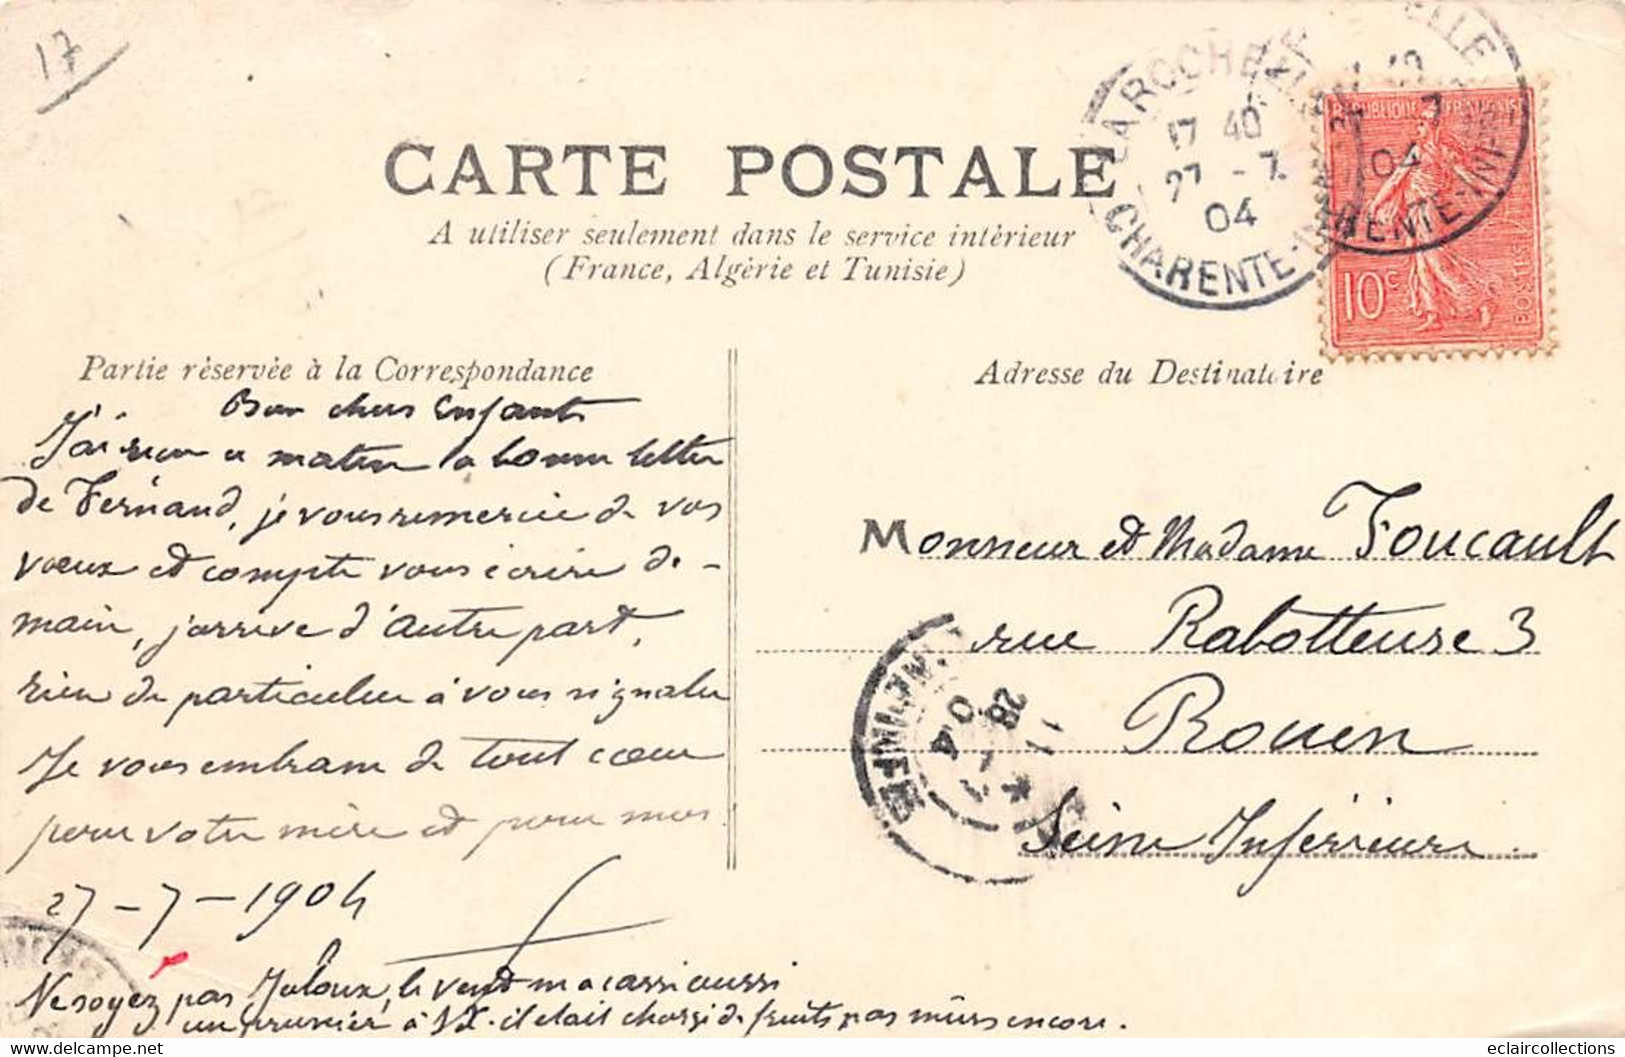 17
CARTE POSTALE
A utiliser seulement dans le service intérieur
(France, Algérie et Tunisie)
LA ROCHELLE
17 40
27 - 7
04
CHARENTE-INFRE
REPUBLIQUE FRANÇAISE
10c
POSTES
Partie réservée à la Correspondance
Adresse du Destinataire
Bien chers Enfants
J'ai reçu ce matin la bonne lettre
de Fernand, je vous remercie de vos
vœux et compte vous écrire de-
main, j'arrive d'autre part,
rien de particulier à vous signaler
Je vous embrasse de tout cœur
pour votre mère et pour moi
27-7-1904
Ne soyez pas Jaloux, le vent m'a cassé aussi
un prunier à il était chargé de fruits pas mûrs encore.
Monsieur et Madame Foucault
rue Rabotteuse 3
Rouen
Seine Inférieure
11
28
7
04
eclaircollections